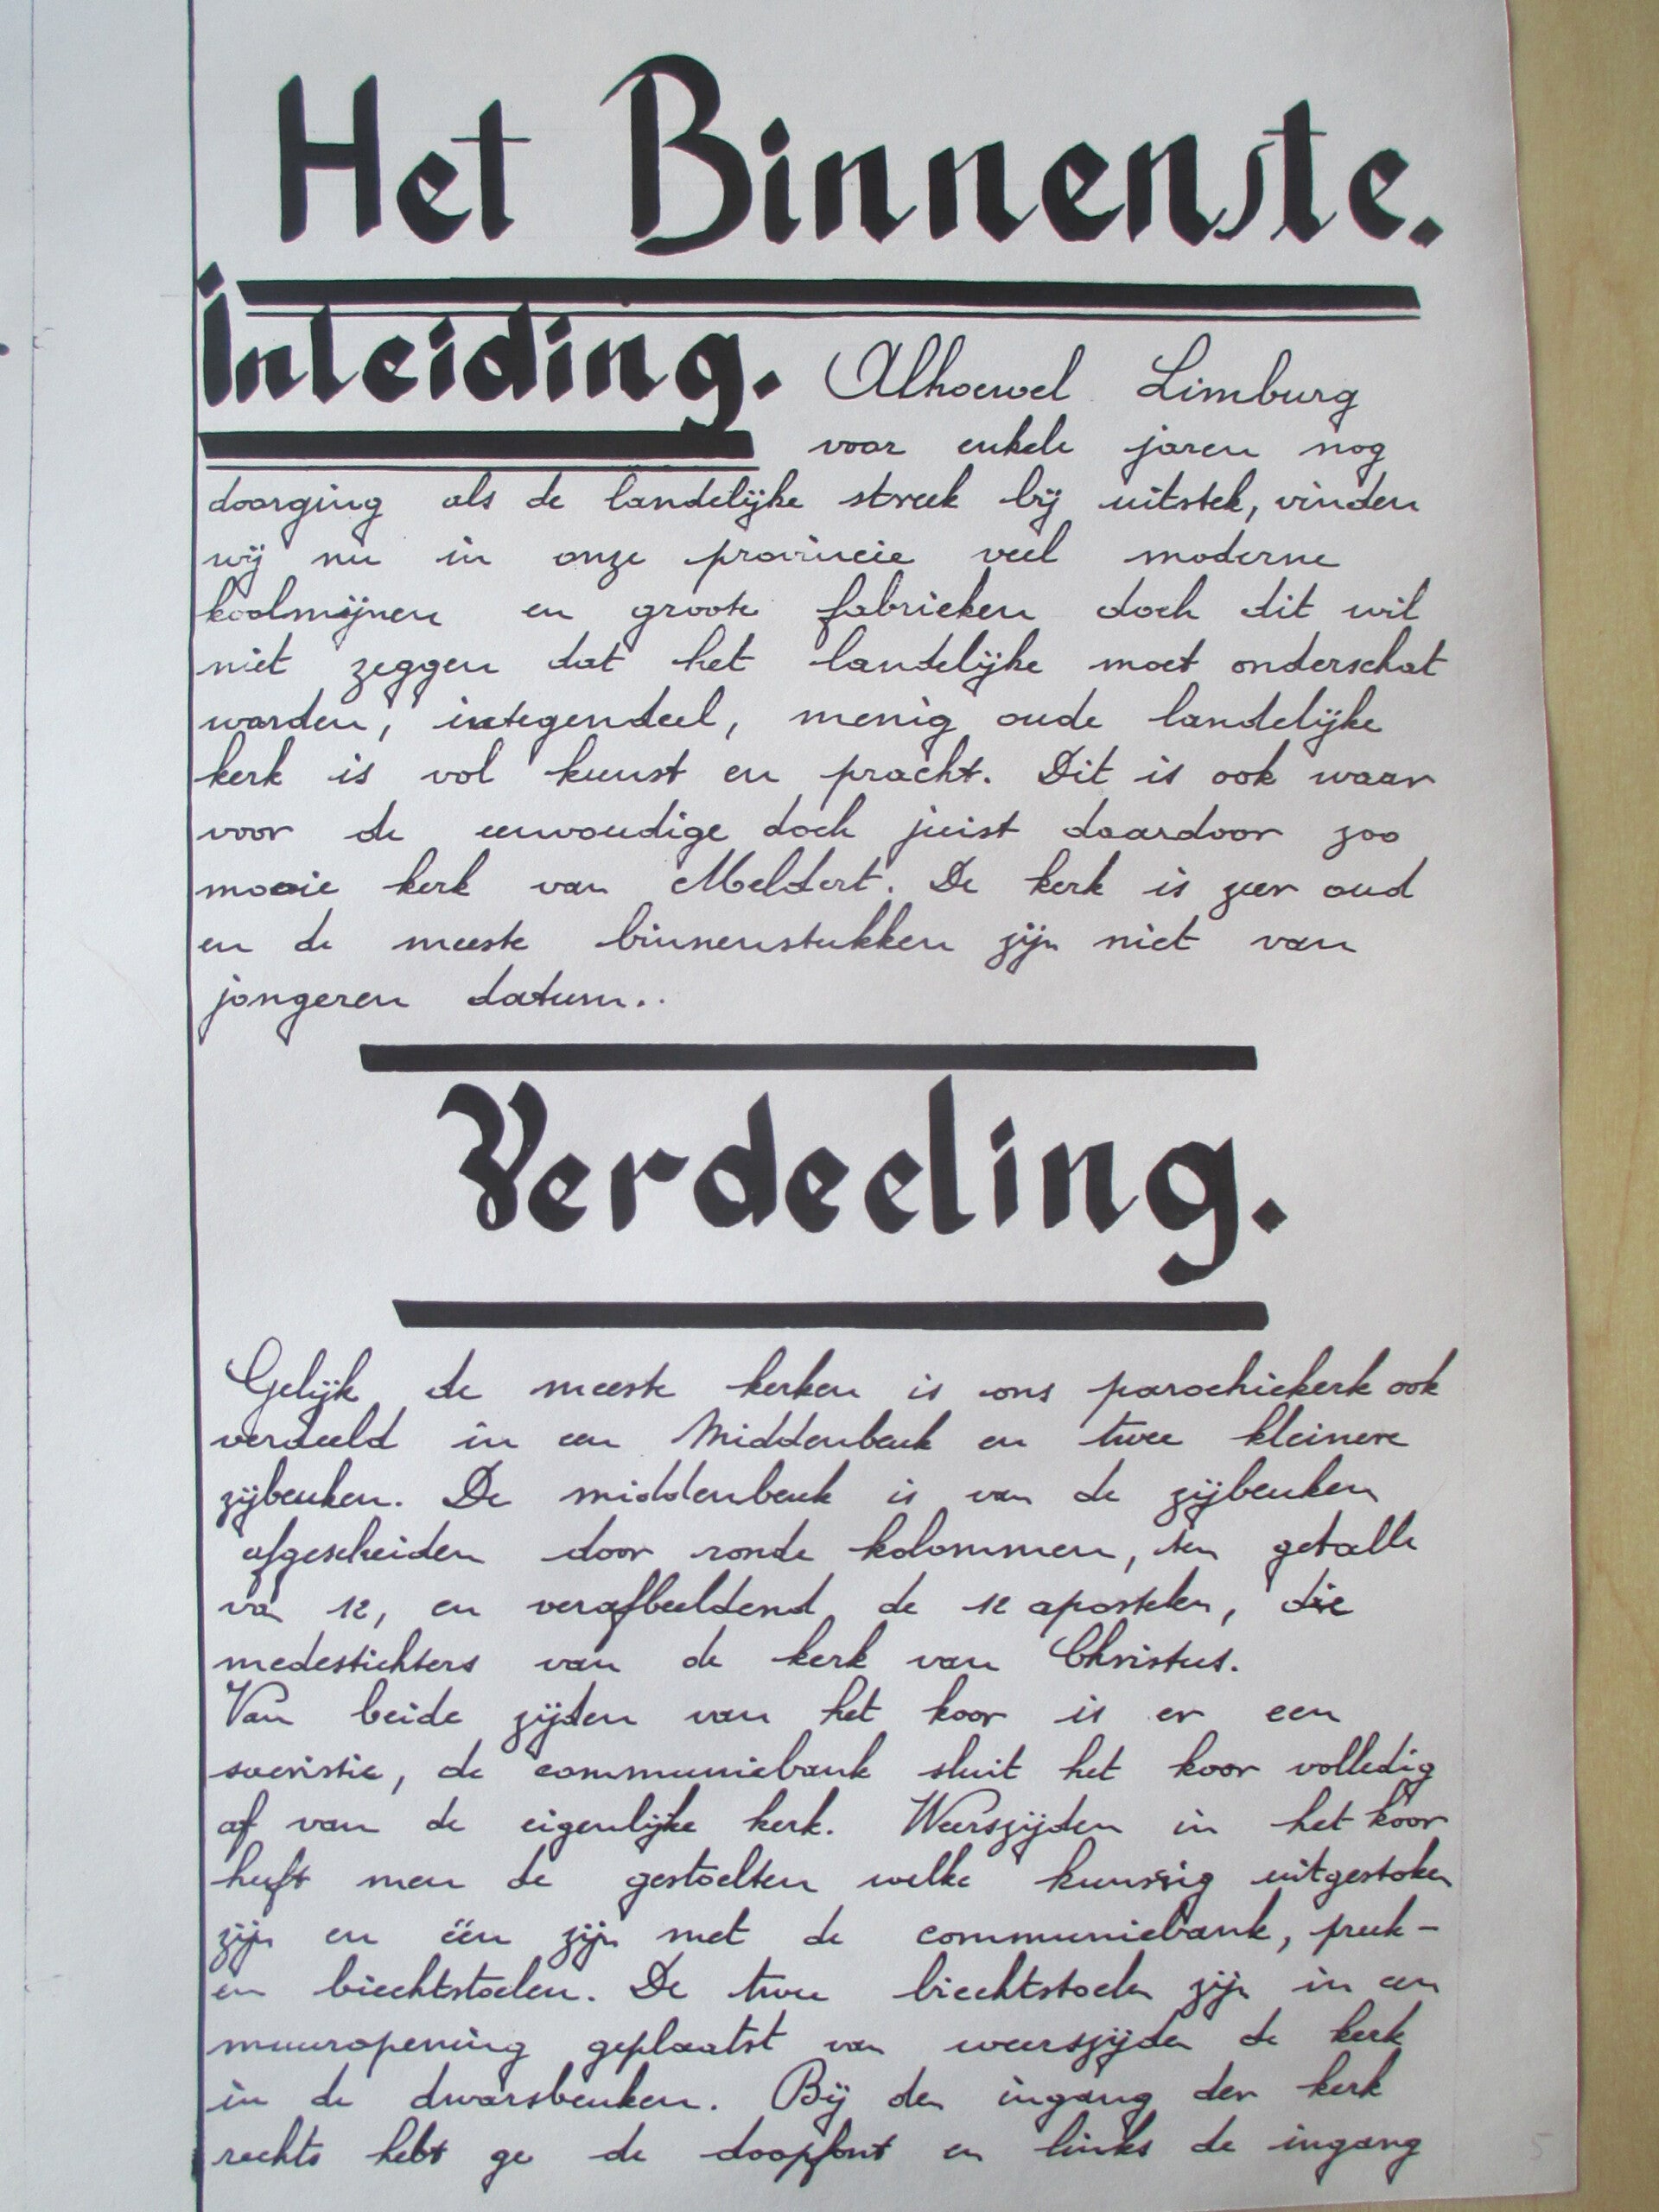 Het Binnenste.
Inleiding. Alhoewel Limburg
voor enkele jaren nog
doorging als de landelijke streek bij uitstek, vinden
wij nu in onze provincie veel moderne
koolmijnen en groote fabrieken doch dit wil
niet zeggen dat het landelijke moet onderschat
worden, integendeel, menig oude landelijke
kerk is vol kunst en pracht. Dit is ook waar
voor de eenvoudige doch juist daardoor zoo
mooie kerk van Meldert. De kerk is zeer oud
en de meeste binnenstukken zijn niet van
jongeren datum..
Verdeeling.
Gelijk de meeste kerken is ons parochiekerk ook
verdeeld in een Middenbeuk en twee kleinere
zijbeuken. De middenbeuk is van de zijbeuken
afgescheiden door ronde kolommen, ten getalle
va 12, en verafbeeldend de 12 apostelen, die
medestichters van de kerk van Christus.
Van beide zijden van het koor is er een
sacristie, de communiebank sluit het koor volledig
af van de eigenlijke kerk. Weerszijden in het koor
heeft men de gestoelten welke kunssig uitgestoken
zijn en één zijn met de communiebank, preek-
en biechtstoelen. De twee biechtstoelen zijn in een
muuropening geplaatst van weerszijden de kerk
in de dwarsbeuken. Bij den ingang der kerk
rechts hebt ge de doopfont en links de ingang
5